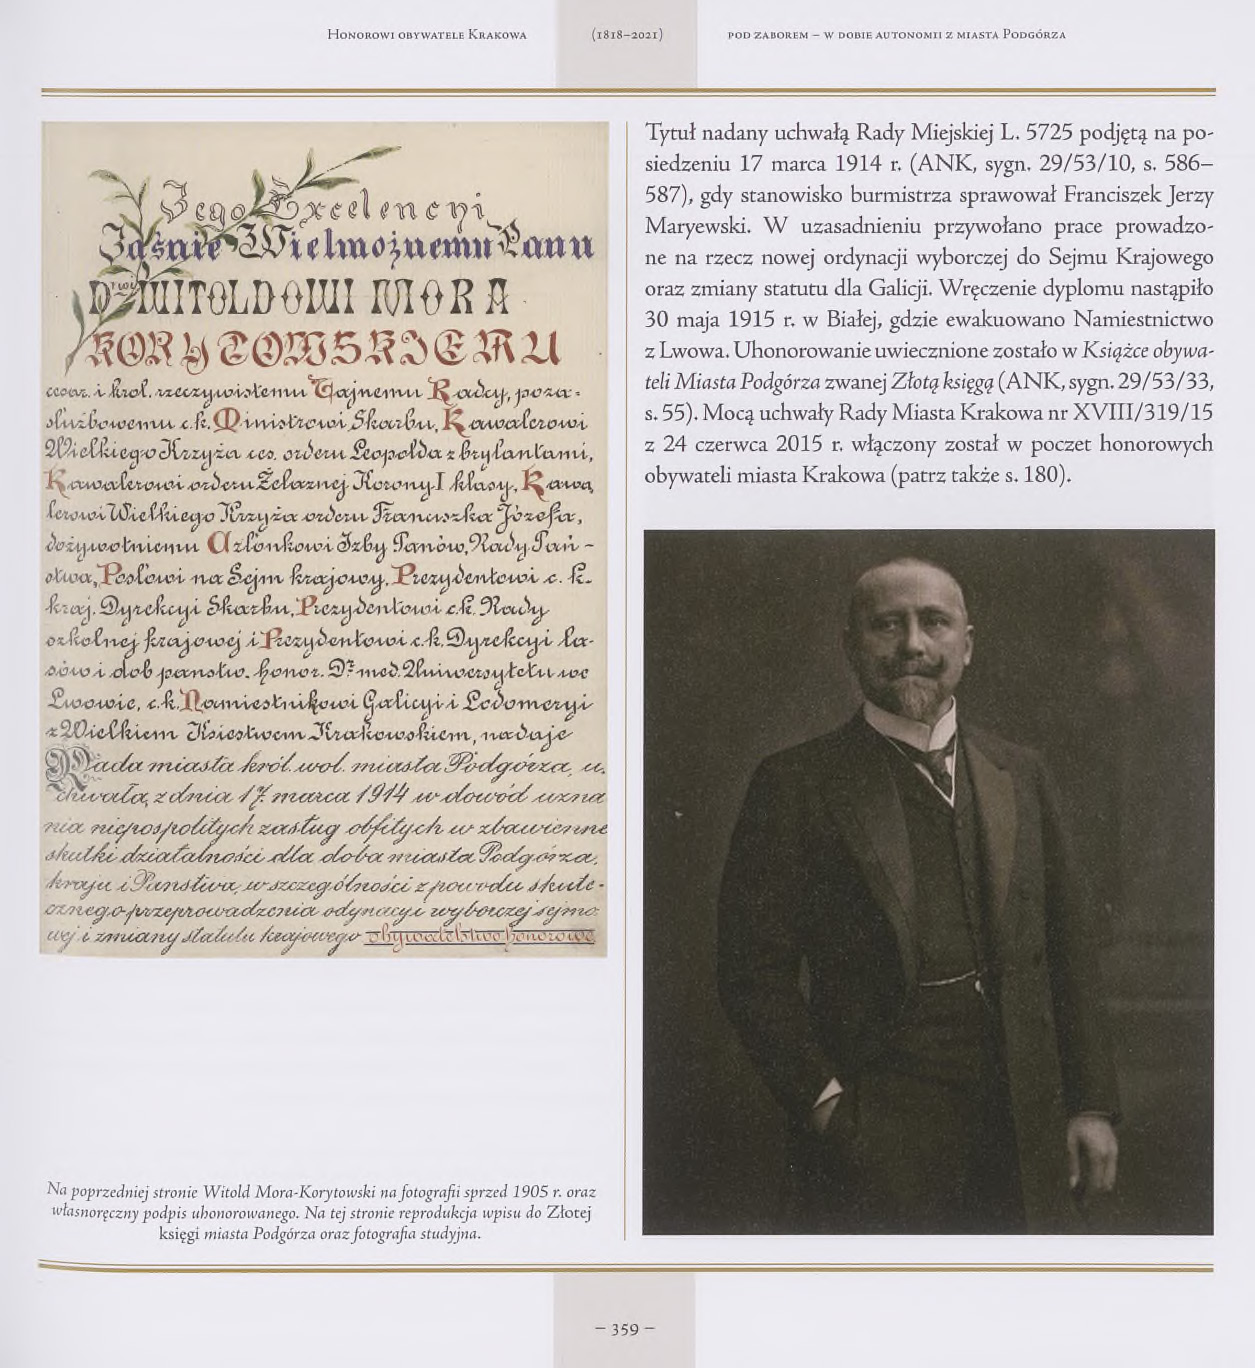 Honorowi obywatele Krakowa
(1818–2021)
pod zaborem – w dobie autonomii z miasta Podgórza
Jego Excelencyi
Jaśnie Wielmożnemu Panu
Drwi WITOLDOWI MORA
KORYTOWSKIEMU
cesar. i król. rzeczywistemu Tajnemu Radcy, poza-
służbowemu c.k. Ministrowi Skarbu, Kawalerowi
Wielkiego Krzyża ces. orderu Leopolda z brylantami,
Kawalerowi orderu Żelaznej Korony I klasy, Kawa
lerowi Wielkiego Krzyża orderu Franciszka Józefa,
dożywotniemu Członkowi Izby Panów, Rady Pań-
stwa, Posłowi na Sejm krajowy, Prezydentowi c. k.
kraj. Dyrekcyi Skarbu, Prezydentowi c.k. Rady
szkolnej krajowej i Prezydentowi c.k. Dyrekcyi la-
sów i dob państw. honor. Dr. med. Uniwersytetu we
Lwowie, c.k. Namiestnikowi Galicyi i Lodomeryi
z Wielkiem Księstwem Krakowskiem, nadaje
Rada miasta król. wol. miasta Podgórza, u-
chwałą z dnia 17. marca 1914 w dowód uzna
nia niepospolitych zasług obfitych w zbawienne
skutki działalności dla doba miasta Podgórza,
kraju i Państwa, w szczególności z powodu skute-
cznego przeprowadzenia odynacyi wyborczej sejmo-
wej i zmiany statutu krajowego obywatelstwo honorowe
Na poprzedniej stronie Witold Mora-Korytowski na fotografii sprzed 1905 r. oraz
własnoręczny podpis uhonorowanego. Na tej stronie reprodukcja wpisu do Złotej
księgi miasta Podgórza oraz fotografia studyjna.
Tytuł nadany uchwałą Rady Miejskiej L. 5725 podjętą na po-
siedzeniu 17 marca 1914 r. (ANK, sygn. 29/53/10, s. 586–
587), gdy stanowisko burmistrza sprawował Franciszek Jerzy
Maryewski. W uzasadnieniu przywołano prace prowadzo-
ne na rzecz nowej ordynacji wyborczej do Sejmu Krajowego
oraz zmiany statutu dla Galicji. Wręczenie dyplomu nastąpiło
30 maja 1915 r. w Białej, gdzie ewakuowano Namiestnictwo
z Lwowa. Uhonorowanie uwiecznione zostało w Książce obywa-
teli Miasta Podgórza zwanej Złotą księgą (ANK, sygn. 29/53/33,
s. 55). Mocą uchwały Rady Miasta Krakowa nr XVIII/319/15
z 24 czerwca 2015 r. włączony został w poczet honorowych
obywateli miasta Krakowa (patrz także s. 180).
– 359 –